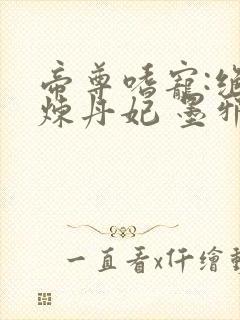 帝尊嗜寵:絕
煉丹妃 墨邪
一直看x仟繪動